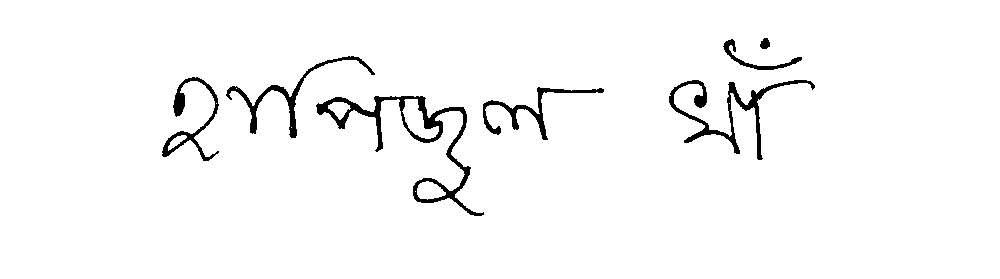 হাপিজুল খাঁ